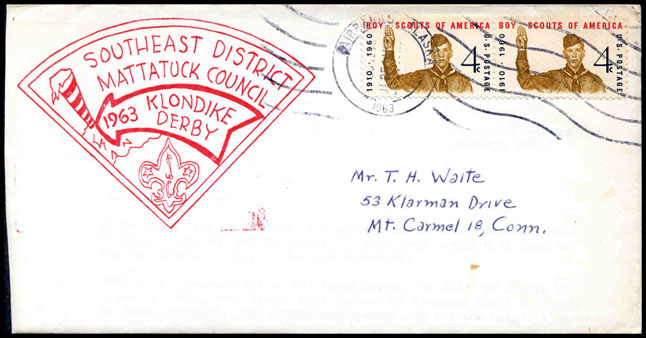 SOUTHEAST DISTRICT
MATTATUCK COUNCIL
1963 KLONDIKE
DERBY
1963
BOY SCOUTS OF AMERICA
1910 · 1960
4c
U.S. POSTAGE
BOY SCOUTS OF AMERICA
1910 · 1960
4c
U.S. POSTAGE
Mr. T. H. Waite
53 Klarman Drive
Mt. Carmel 18, Conn.